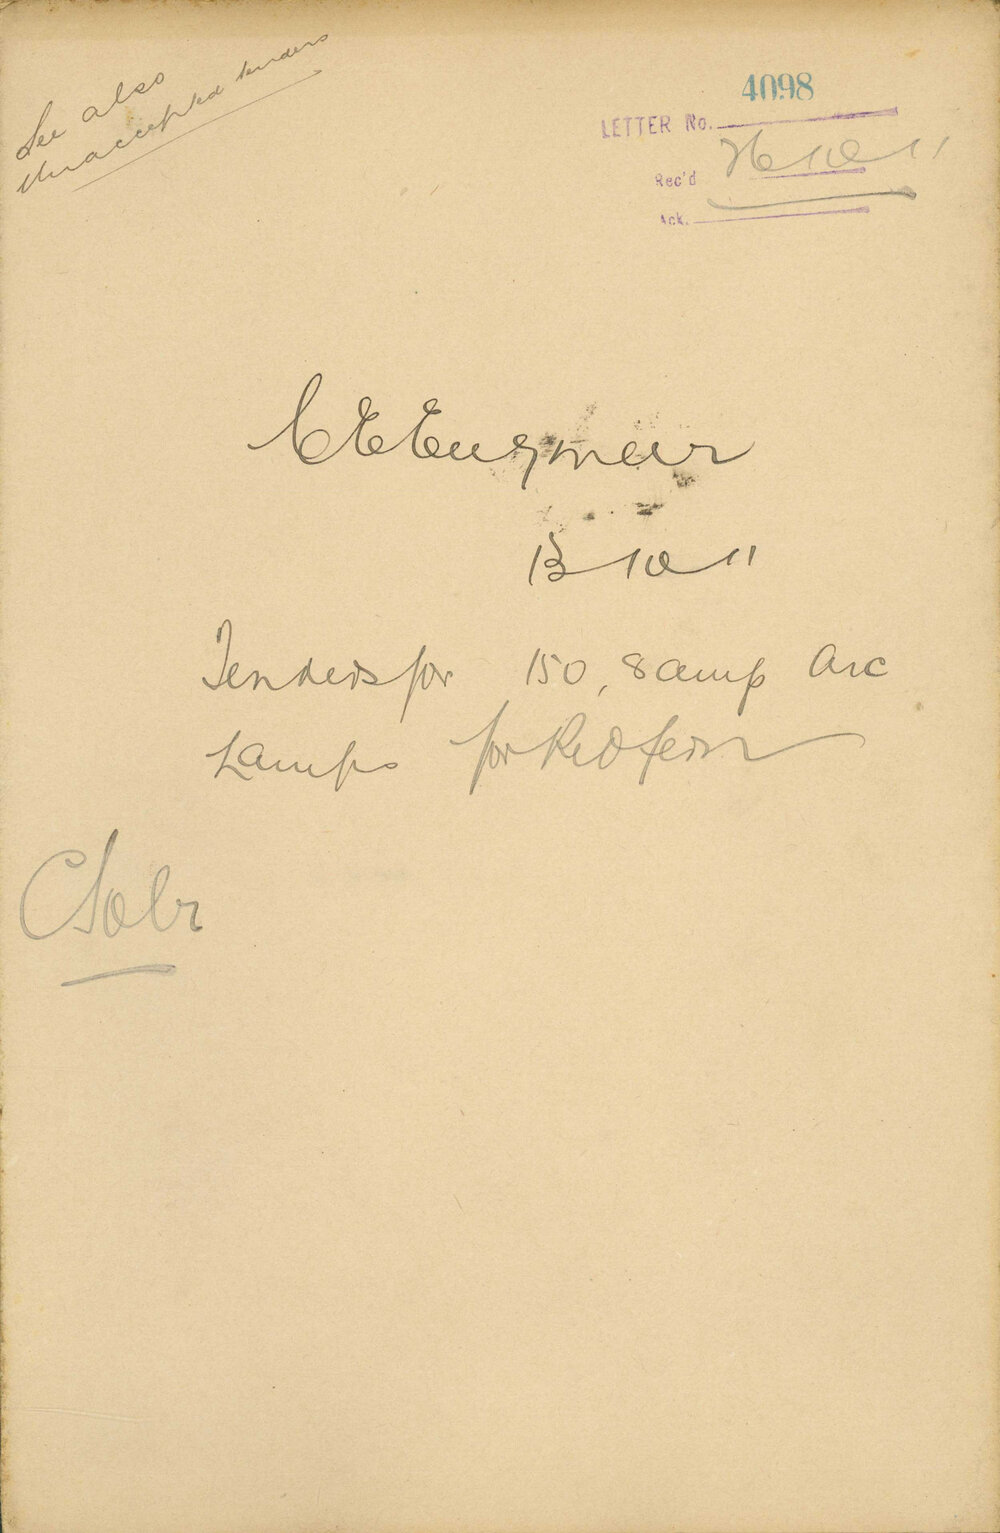 See also
Unaccepted tenders
4098
LETTER No.
Rec'd 26 10 11
Ack.
C E Engineer
13 10 11
Tenders for 150, 8 amp Arc
Lamps for Redfern